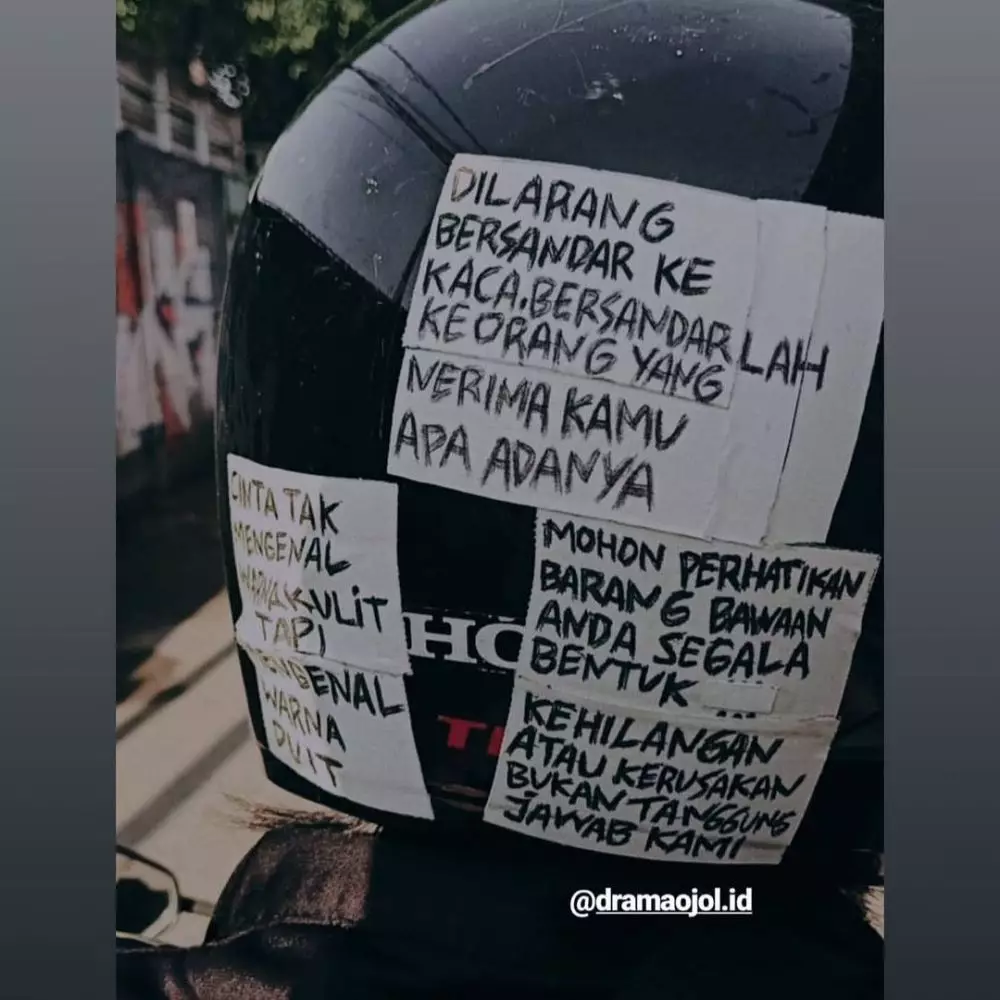 DILARANG
BERSANDAR KE
KACA.BERSANDARLAH
KEORANG YANG
NERIMA KAMU
APA ADANYA
CINTA TAK
MENGENAL
WARNAKULiT
TAPI
MENGENAL
WARNA
DUIT
HO
MOHON PERHATiKAN
BARANG BAWAAN
ANDA SEGALA
BENTUK
KEHILANGAN
ATAU KERUSAKAN
BUKAN TANGGUNG
JAWAB KAMI
@dramaojol.id